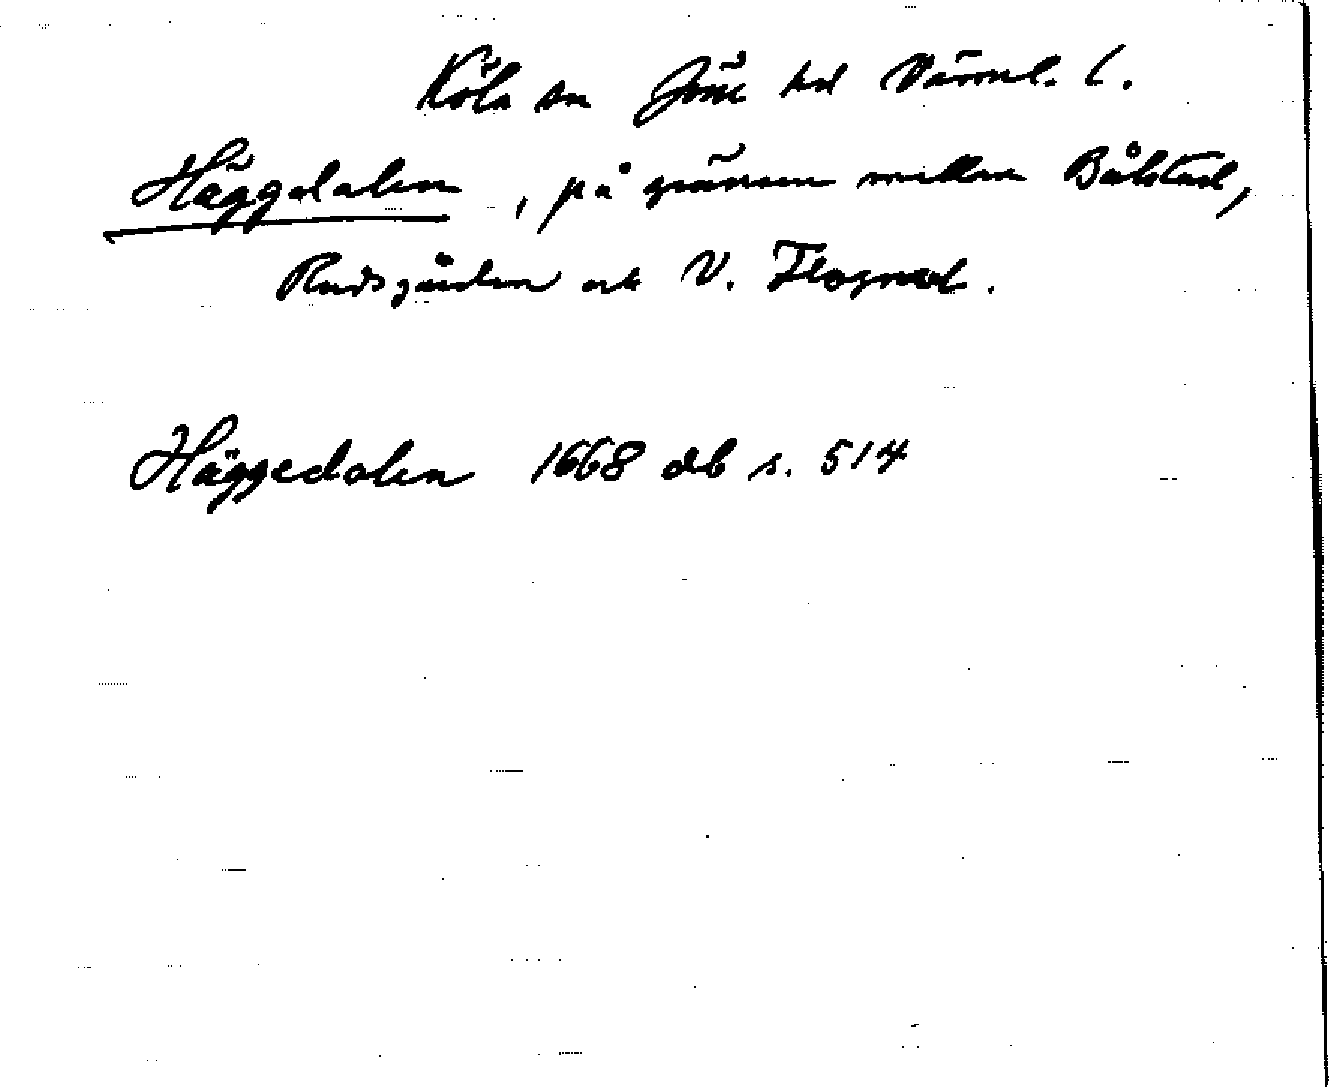 Köla sn Jösse hd Värml. l.
Häggdalen, på gränsen mellan Bålstad,
Rudsgården och V. Flogned.
Häggedalen 1668 db s. 514